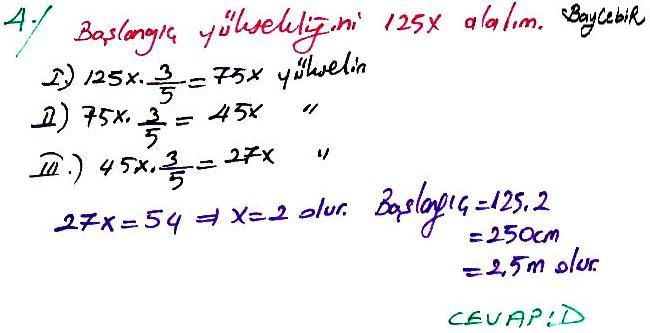 4-/ Başlangıç yüksekliğini 125x alalım. BayCebiR
I.) 125x. 3/5 = 75x yükselir
II) 75x. 3/5 = 45x "
III.) 45x. 3/5 = 27x "
27x = 54 ⇒ x = 2 olur. Başlangıç = 125.2
= 250cm
= 2,5m olur.
CEVAP: D